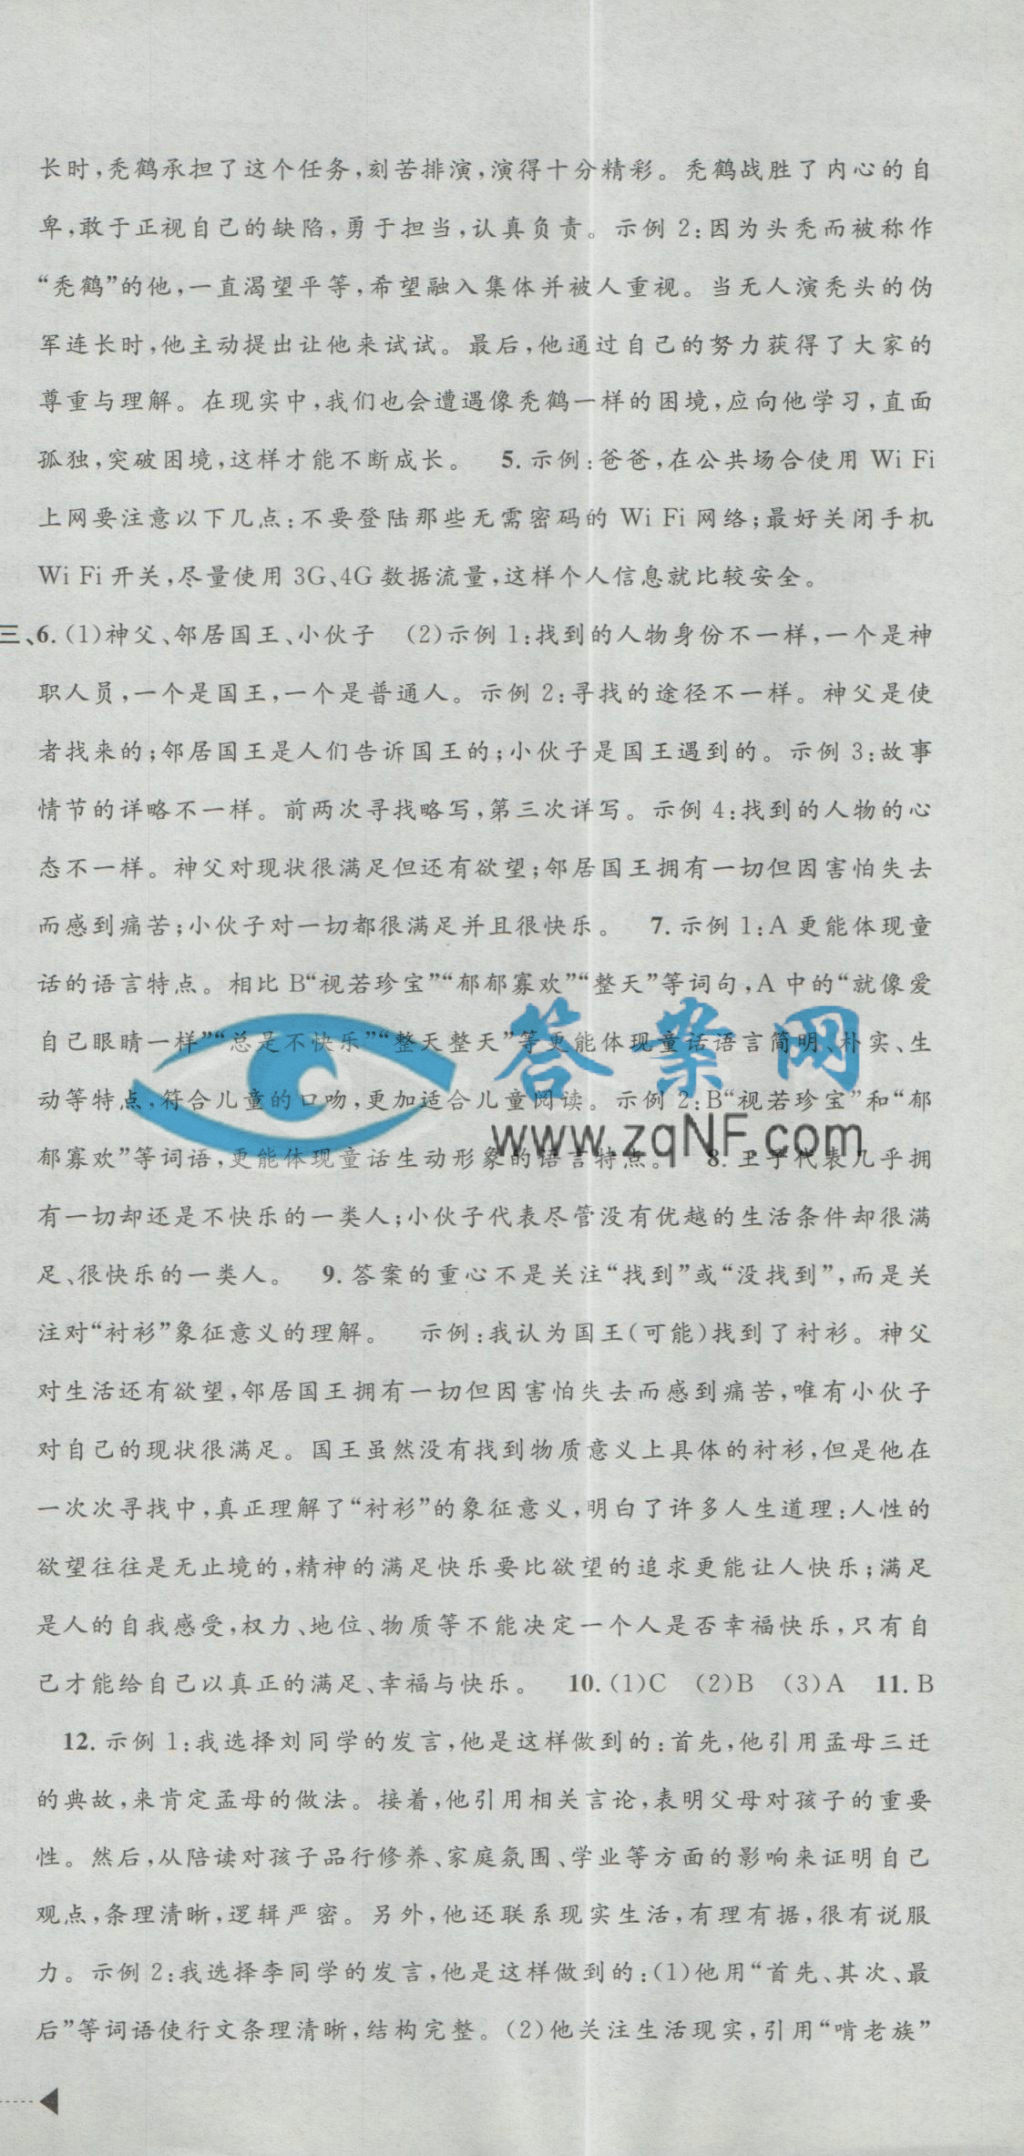 长时,秃鹤承担了这个任务,刻苦排演,演得十分精彩。秃鹤战胜了内心的自
卑,敢于正视自己的缺陷,勇于担当,认真负责。示例 2:因为头秃而被称作
“秃鹤”的他,一直渴望平等,希望融入集体并被人重视。当无人演秃头的伪
军连长时,他主动提出让他来试试。最后,他通过自己的努力获得了大家的
尊重与理解。在现实中,我们也会遭遇像秃鹤一样的困境,应向他学习,直面
孤独,突破困境,这样才能不断成长。 5. 示例:爸爸,在公共场合使用 Wi Fi
上网要注意以下几点:不要登陆那些无需密码的 Wi Fi 网络;最好关闭手机
Wi Fi 开关,尽量使用 3G、4G 数据流量,这样个人信息就比较安全。
三、6. (1)神父、邻居国王、小伙子 (2)示例 1:找到的人物身份不一样,一个是神
职人员,一个是国王,一个是普通人。示例 2:寻找的途径不一样。神父是使
者找来的;邻居国王是人们告诉国王的;小伙子是国王遇到的。示例 3:故事
情节的详略不一样。前两次寻找略写,第三次详写。示例 4:找到的人物的心
态不一样。神父对现状很满足但还有欲望;邻居国王拥有一切但因害怕失去
而感到痛苦;小伙子对一切都很满足并且很快乐。 7. 示例 1:A 更能体现童
话的语言特点。相比 B“视若珍宝”“郁郁寡欢”“整天”等词句,A 中的“就像爱
自己眼睛一样”“总是不快乐”“整天整天”等更能体现童话语言简明、朴实、生
动等特点,符合儿童的口吻,更加适合儿童阅读。示例 2:B“视若珍宝”和“郁
郁寡欢”等词语,更能体现童话生动形象的语言特点。 8. 王子代表几乎拥
有一切却还是不快乐的一类人;小伙子代表尽管没有优越的生活条件却很满
足、很快乐的一类人。 9. 答案的重心不是关注“找到”或“没找到”,而是关
注对“衬衫”象征意义的理解。 示例:我认为国王(可能)找到了衬衫。神父
对生活还有欲望,邻居国王拥有一切但因害怕失去而感到痛苦,唯有小伙子
对自己的现状很满足。国王虽然没有找到物质意义上具体的衬衫,但是他在
一次次寻找中,真正理解了“衬衫”的象征意义,明白了许多人生道理:人性的
欲望往往是无止境的,精神的满足快乐要比欲望的追求更能让人快乐;满足
是人的自我感受,权力、地位、物质等不能决定一个人是否幸福快乐,只有自
己才能给自己以真正的满足、幸福与快乐。 10. (1)C (2)B (3)A 11. B
12. 示例 1:我选择刘同学的发言,他是这样做到的:首先,他引用孟母三迁
的典故,来肯定孟母的做法。接着,他引用相关言论,表明父母对孩子的重要
性。然后,从陪读对孩子品行修养、家庭氛围、学业等方面的影响来证明自己
观点,条理清晰,逻辑严密。另外,他还联系现实生活,有理有据,很有说服
力。示例 2:我选择李同学的发言,他是这样做到的:(1)他用“首先、其次、最
后”等词语使行文条理清晰,结构完整。(2)他关注生活现实,引用“啃老族”
答案网
www.zqNF.com